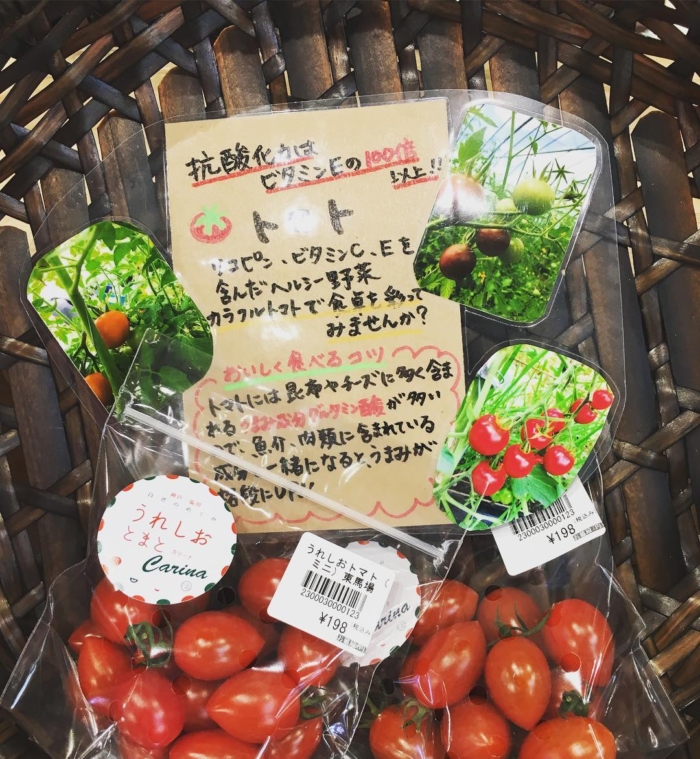 抗酸化力は
ビタミンEの100倍
以上!!
トマト
リコピン、ビタミンC、Eを
含んだヘルシー野菜
カラフルトマトで食卓を彩って
みませんか?
おいしく食べるコツ
トマトには昆布やチーズに多く含ま
れるうまみ成分グルタミン酸が多い
ので、魚介、肉類に含まれている
成分と一緒になると、うまみが
うれしお
とまと
Carina
うれしおトマト(
ミニ)東馬場
2300030000123
¥198
税込み
Carina
2300030000123
¥198
税込み